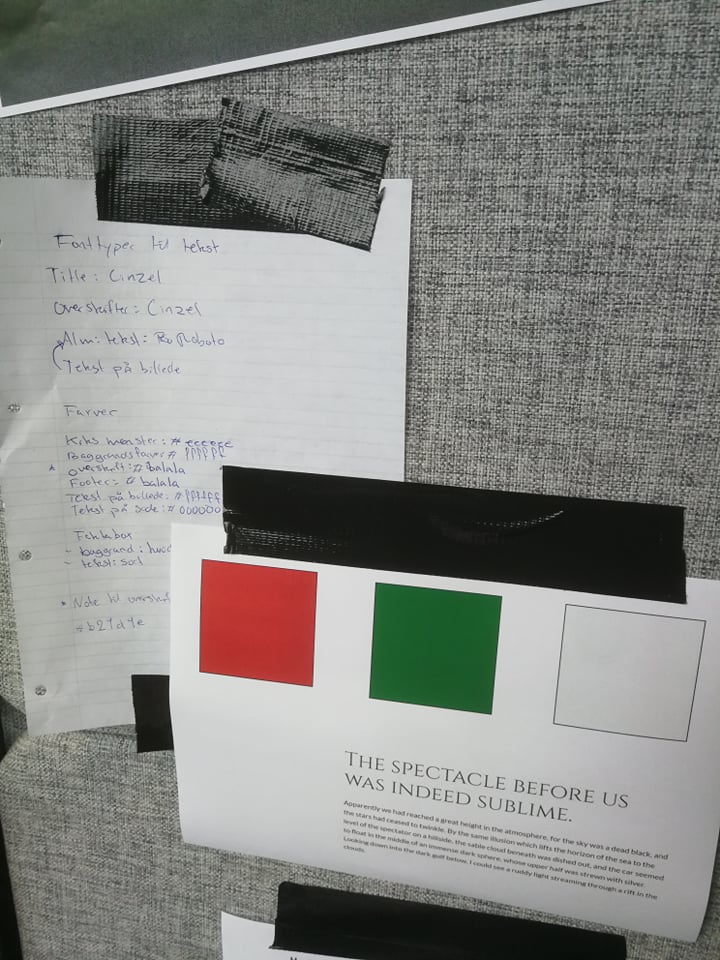 Fonttyper til tekst
Title: Cinzel
Overskrifter: Cinzel
Alm: tekst: Roboto
Tekst på billede
Farver
Kiks mønster: # eeeeee
Baggrundsfarver # ffffff
* overskrift: # ba1a1a
Footer: # ba1a1a
Tekst på billede: # ffffff
Tekst på side: # 000000
- baggrund:
- tekst: sort
* Note til
THE SPECTACLE BEFORE US
WAS INDEED SUBLIME.
Apparently we had reached a great height in the atmosphere, for the sky was a dead black, and
the stars had ceased to twinkle. By the same illusion which lifts the horizon of the sea to the
level of the spectator on a hillside, the sable cloud beneath was dished out, and the car seemed
to float in the middle of an immense dark sphere, whose upper half was strewn with silver.
Looking down into the dark gulf below, I could see a ruddy light streaming through a rift in the
clouds.